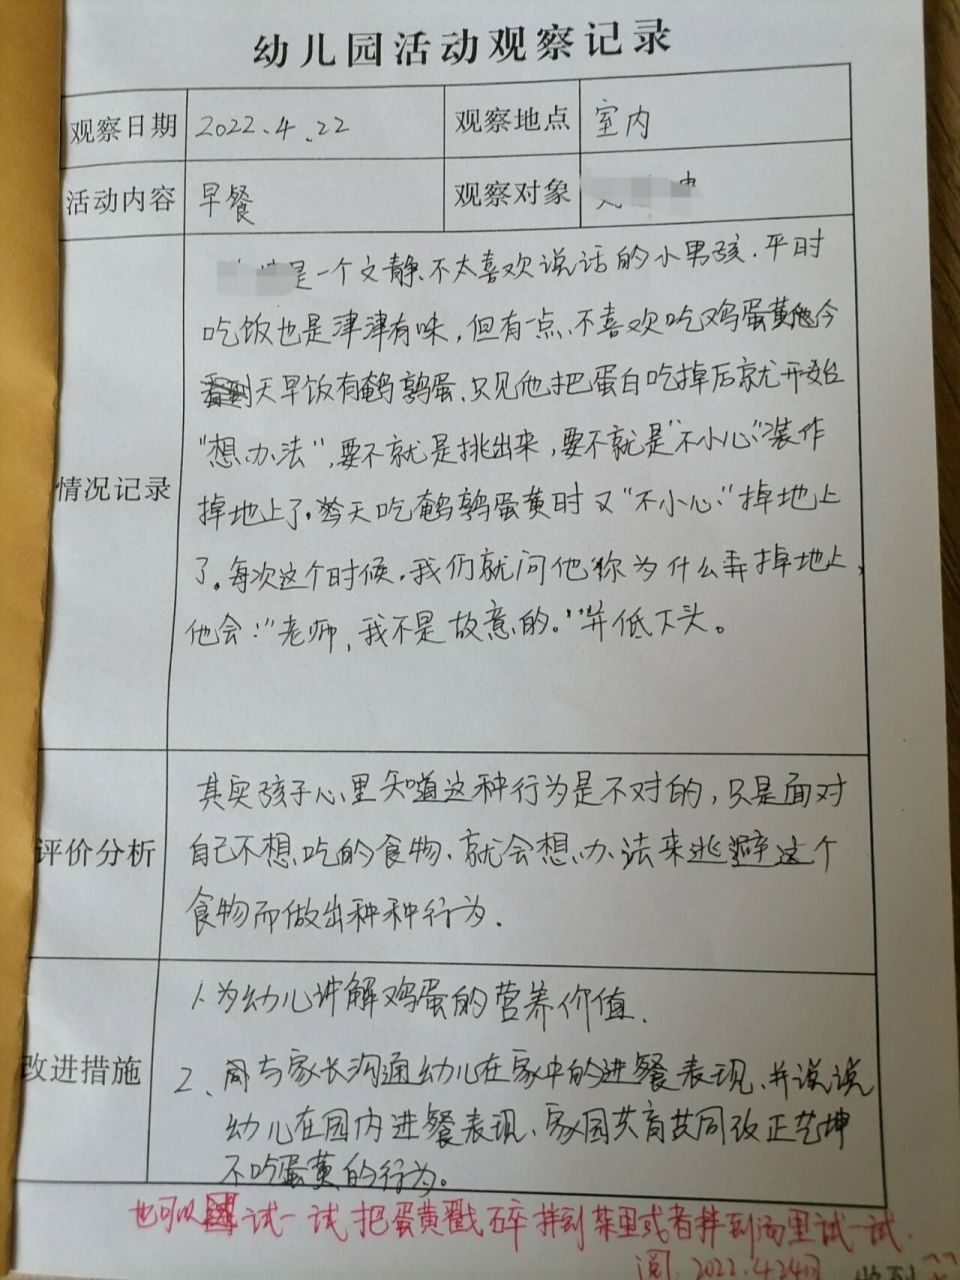 幼儿园活动观察记录
观察日期 2022.4.22 观察地点 室内
活动内容 早餐 观察对象
是一个文静、不太喜欢说话的小男孩.平时
吃饭也是津津有味,但有一点、不喜欢吃鸡蛋黄他今
天早饭有鹌鹑蛋、只见他把蛋白吃掉后就开始
"想办法",要不就是挑出来,要不就是"不小心"装作
情况记录
掉地上了。今天吃鹌鹑蛋黄时又"不小心"掉地上
了。每次这个时候,我们就问他"你为什么弄掉地上,
他会:"老师,我不是故意的。"并低下头。
其实孩子心里知道这种行为是不对的,只是面对
评价分析 自己不想吃的食物、就会想办法来逃避这个
食物而做出种种行为.
1、为幼儿讲解鸡蛋的营养价值.
改进措施 2、与家长沟通幼儿在家中的进餐表现、并说说
幼儿在园内进餐表现、家园共育共同改正艺坤
不吃蛋黄的行为。
也可以试一试把蛋黄戳碎拌到菜里或者拌到汤里试一试.
阅.2022.4.24日